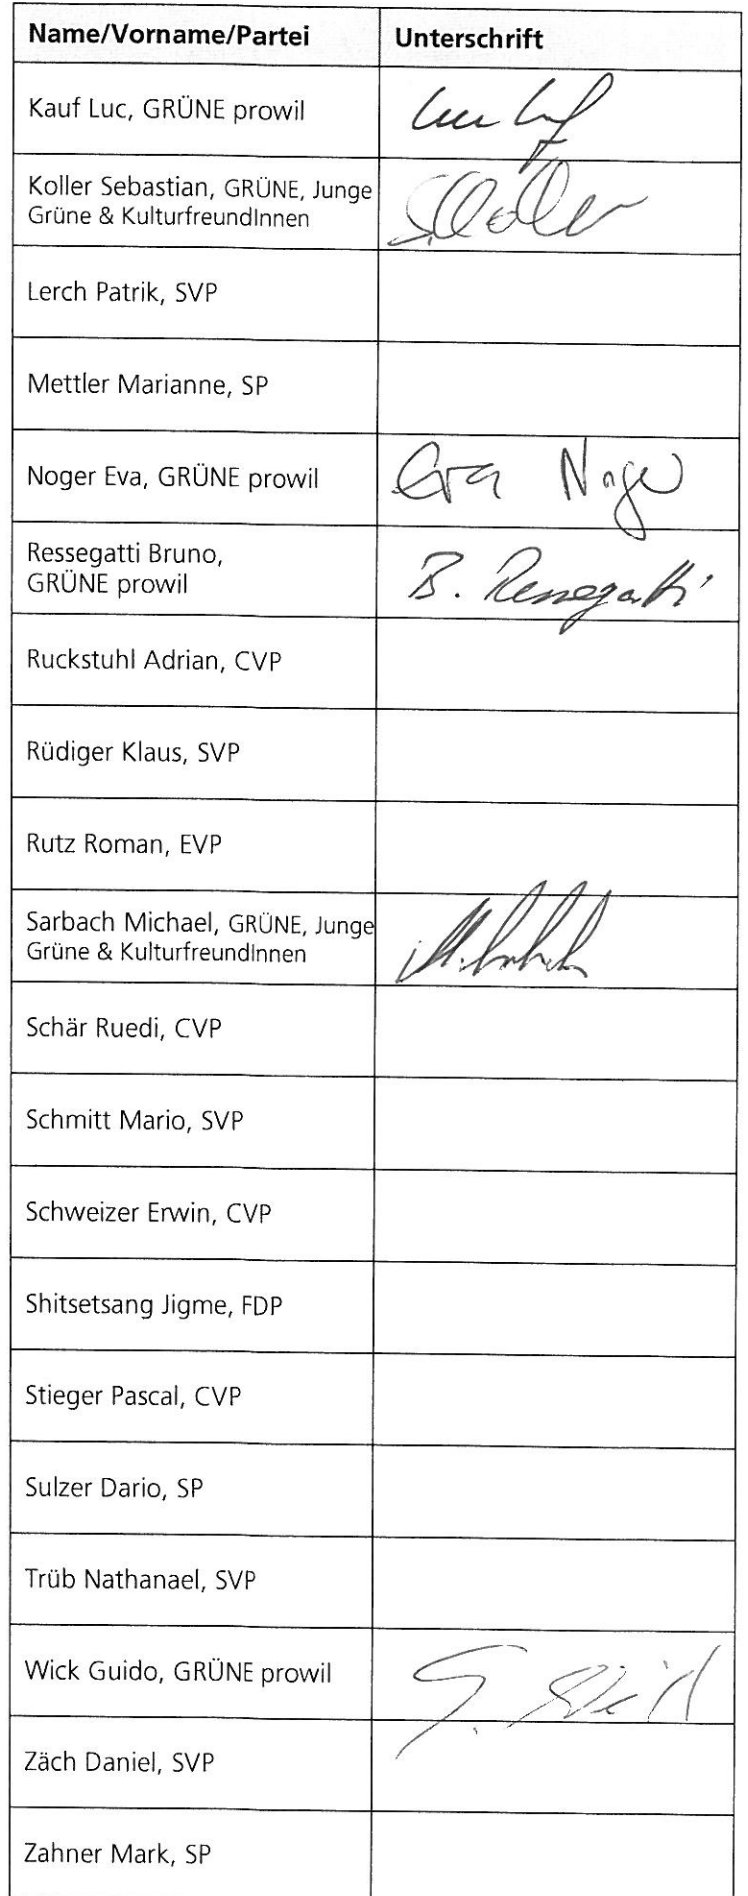 Name/Vorname/Partei Unterschrift
Kauf Luc, GRÜNE prowil
Koller Sebastian, GRÜNE, Junge
Grüne & KulturfreundInnen
Lerch Patrik, SVP
Mettler Marianne, SP
Noger Eva, GRÜNE prowil Eva Noger
Ressegatti Bruno,
GRÜNE prowil
B. Ressegatti
Ruckstuhl Adrian, CVP
Rüdiger Klaus, SVP
Rutz Roman, EVP
Sarbach Michael, GRÜNE, Junge
Grüne & KulturfreundInnen
Schär Ruedi, CVP
Schmitt Mario, SVP
Schweizer Erwin, CVP
Shitsetsang Jigme, FDP
Stieger Pascal, CVP
Sulzer Dario, SP
Trüb Nathanael, SVP
Wick Guido, GRÜNE prowil
Zäch Daniel, SVP
Zahner Mark, SP